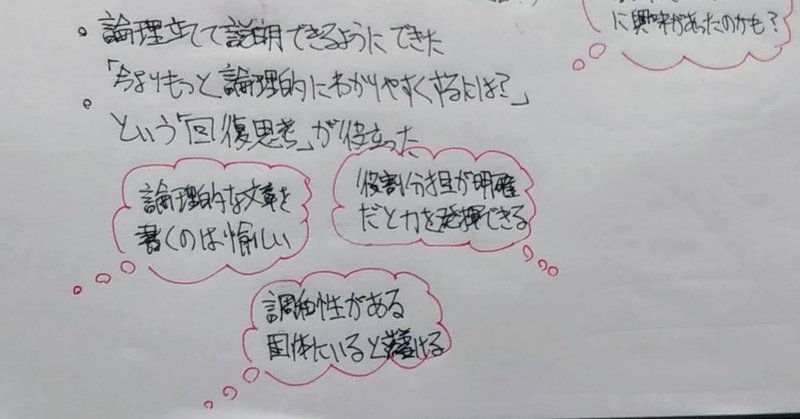 に興味があったのかも?
• 論理立てて説明できるようにできた
• 「今よりもっと論理的にわかりやすくするには?」
という「回復思考」が役立った
論理的な文章を
書くのは愉しい
役割分担が明確
だと力を発揮できる
調和性がある
団体にいると落着ける